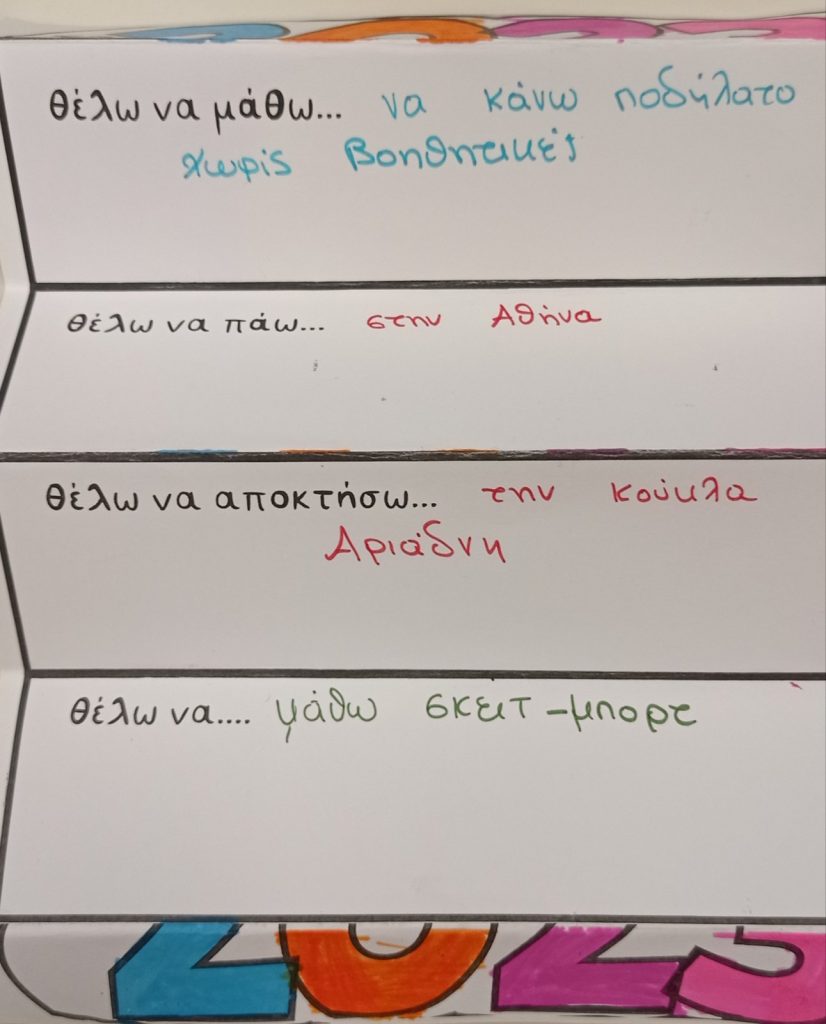 θέλω να μάθω... να κάνω ποδήλατο
χωρίς βοηθητικές
θέλω να πάω... στην Αθήνα
θέλω να αποκτήσω... την κούκλα
Αριάδνη
θέλω να.... μάθω σκειτ-μπορτ
2023